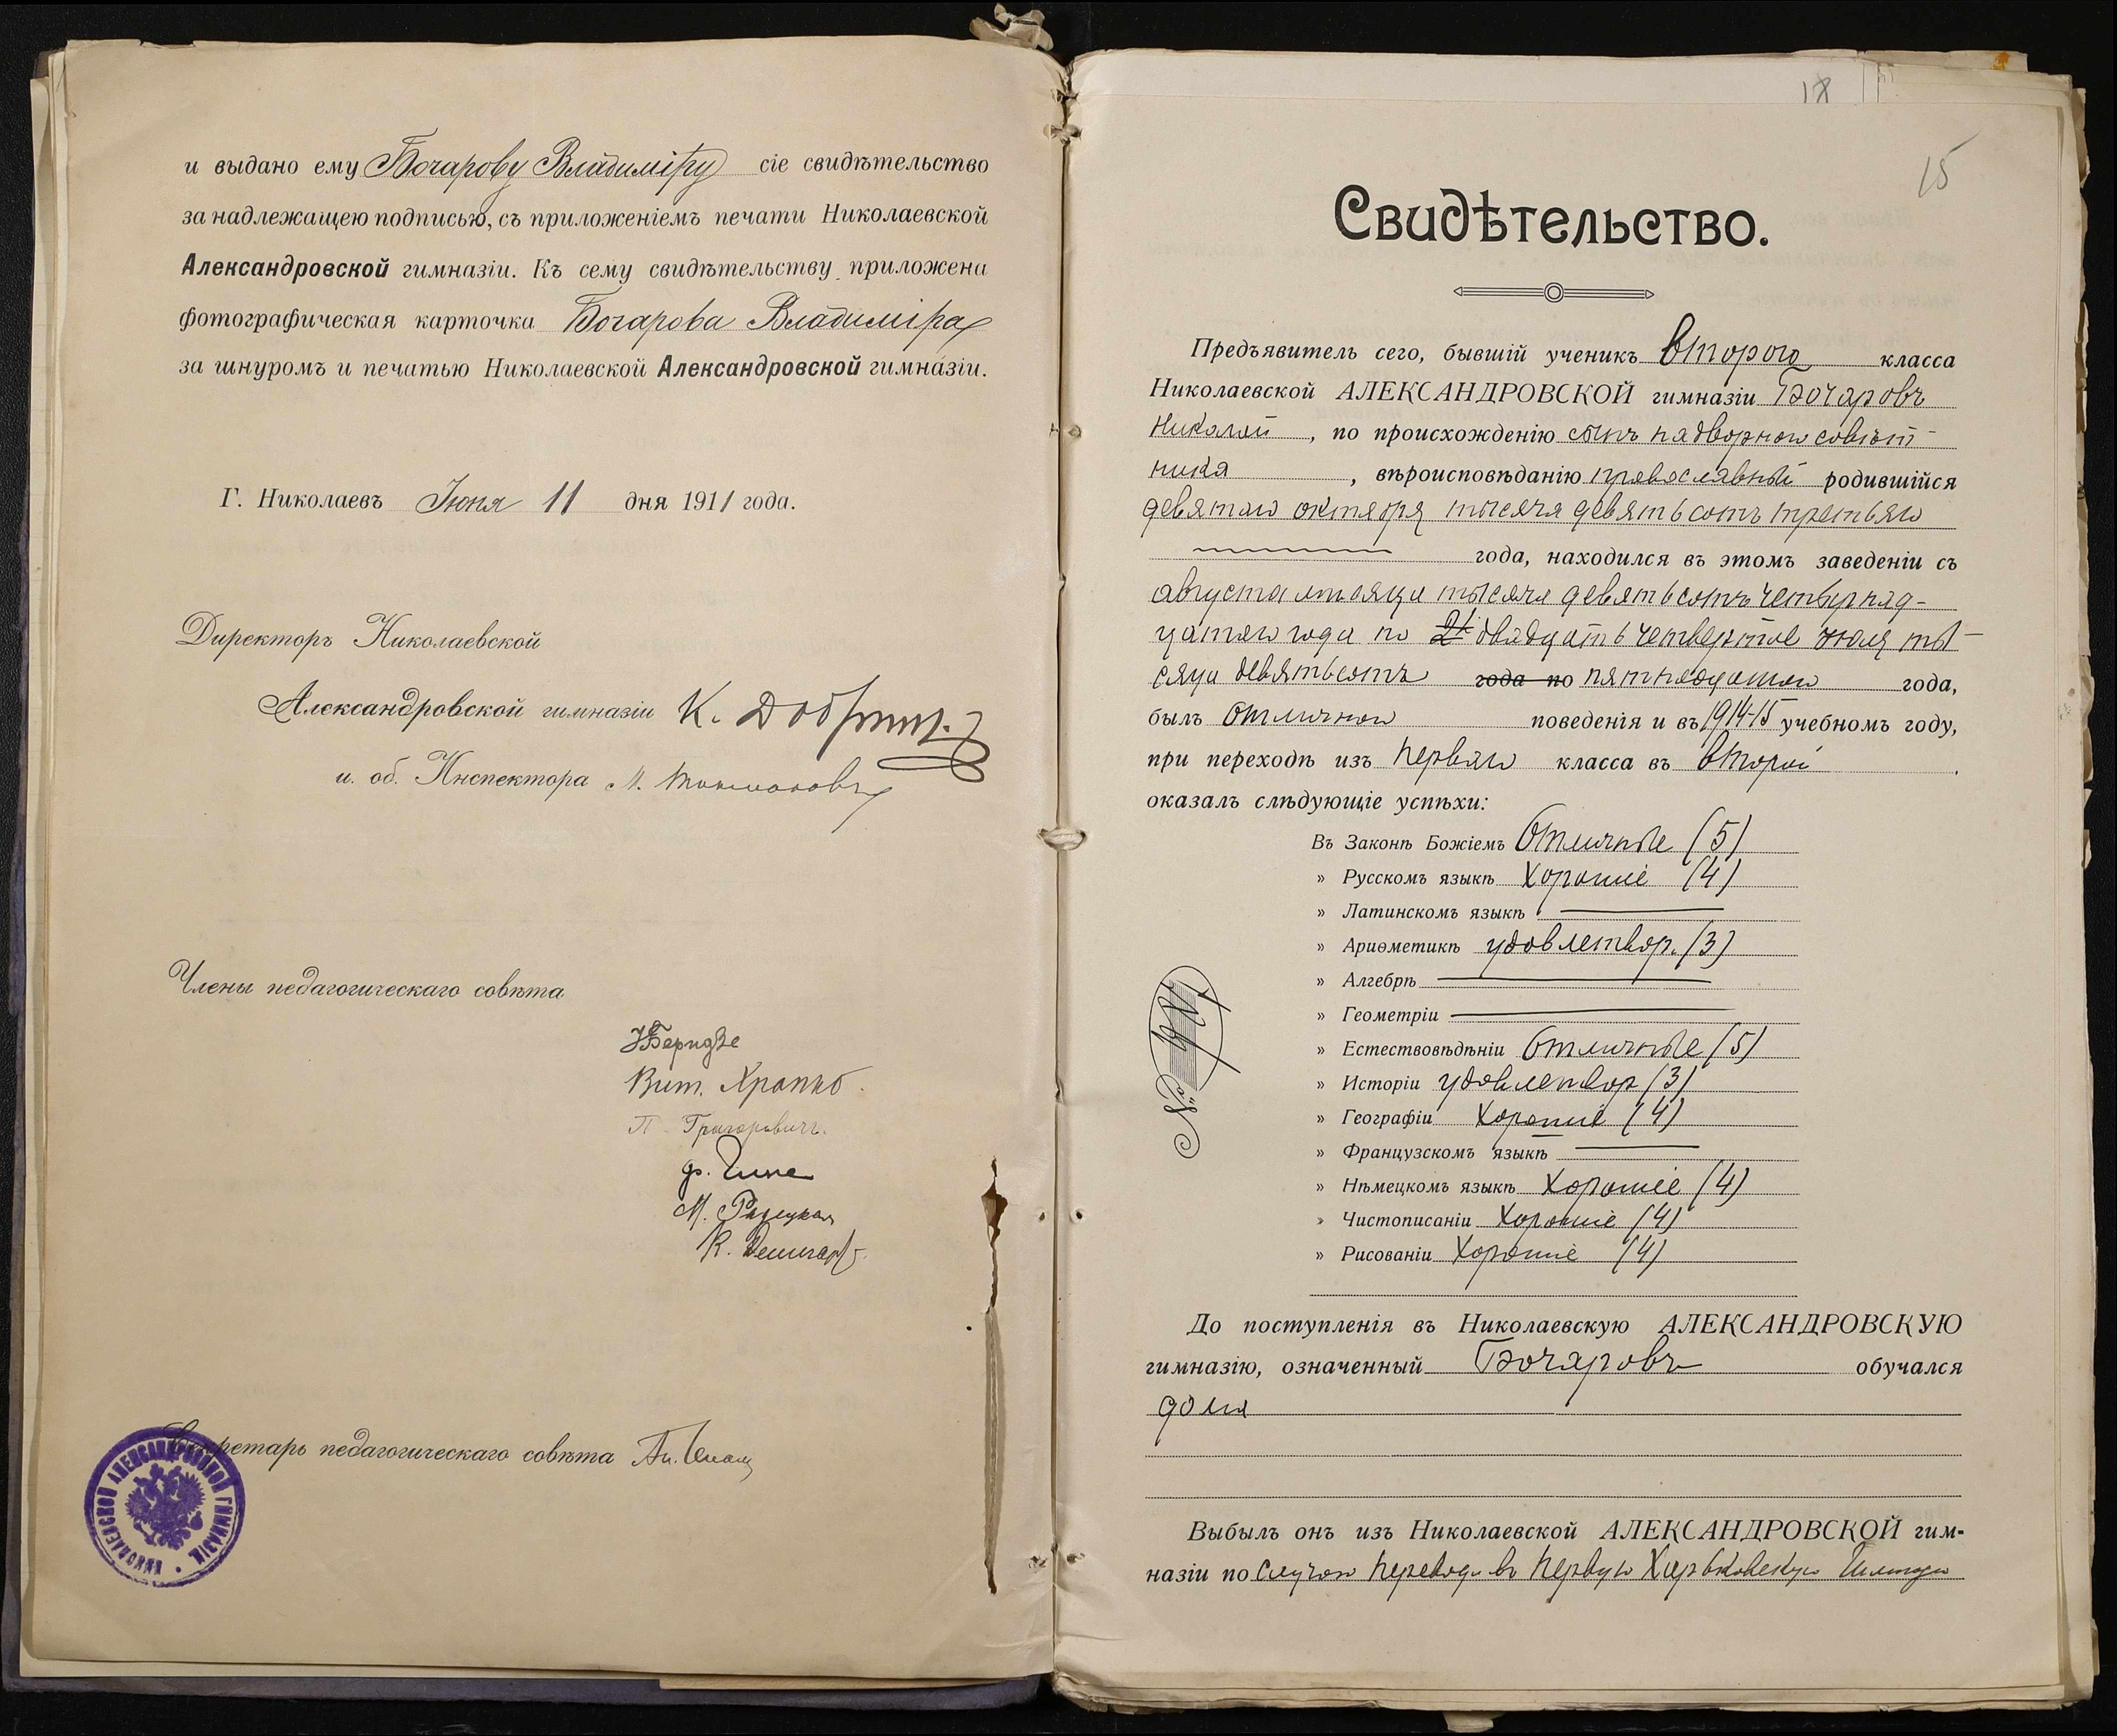 и выдано ему Бочарову Владиміру сіе свидѣтельство
за надлежащею подписью, съ приложеніемъ печати Николаевской
Александровской гимназіи. Къ сему свидѣтельству приложена
фотографическая карточка Бочарова Владиміра
за шнуромъ и печатью Николаевской Александровской гимназіи.
Г. Николаевъ Іюня 11 дня 1911 года.
Директоръ Николаевской
Александровской гимназіи К.
и. об. Инспектора М.
Члены педагогическаго совѣта
Беридзе
Вит. Храпко.
П. Григоровичъ.
ф.
М.
К.
Секретарь педагогическаго совѣта
НИКОЛАЕВСКОЙ АЛЕКСАНДРОВСКОЙ ГИМНАЗІИ
18
15
Свидѣтельство.
Предъявитель сего, бывшій ученикъ второго класса
Николаевской АЛЕКСАНДРОВСКОЙ гимназіи Бочаровъ
Николай, по происхожденію сынъ надворнаго совѣт-
ника, вѣроисповѣданію православный родившійся
девятаго октября тысяча девятьсотъ третьяго
года, находился въ этомъ заведеніи съ
августа мѣсяца тысяча девятьсотъ четырнад-
цатаго года по двадцать четвертое іюля ты-
сяча девятьсотъ года по пятнадцатаго года,
былъ отличнаго поведенія и въ 1914-15 учебномъ году,
при переходѣ изъ перваго класса въ второй.
оказалъ слѣдующіе успѣхи:
Въ Законѣ Божіемъ Отличные (5)
» Русскомъ языкѣ Хорошіе (4)
» Латинскомъ языкѣ
» Ариѳметикѣ удовлетвор. (3)
» Алгебрѣ
» Геометріи
» Естествовѣдѣніи Отличные (5)
» Исторіи удовлетвор (3)
» Географіи Хорошіе (4)
» Французскомъ языкѣ
» Нѣмецкомъ языкѣ Хорошіе (4)
» Чистописаніи Хорошіе (4)
» Рисованіи Хорошіе (4)
№
До поступленія въ Николаевскую АЛЕКСАНДРОВСКУЮ
гимназію, означенный Бочаровъ обучался
дома
Выбылъ онъ изъ Николаевской АЛЕКСАНДРОВСКОЙ гим-
назіи по случаю перевода въ первую Харьковскую Гимназію